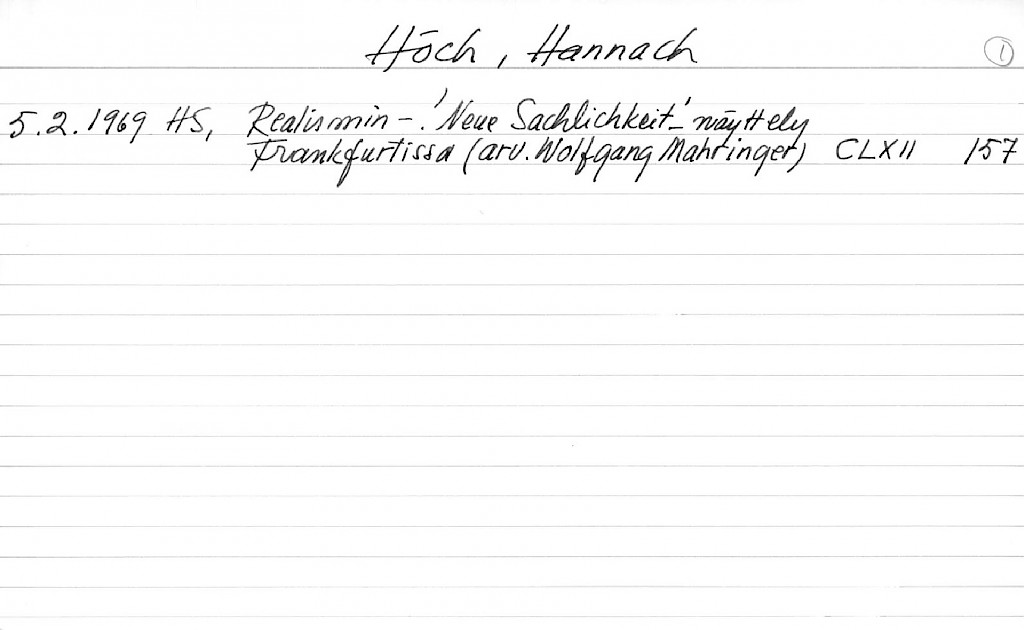 Höch, Hannach 1
5.2.1969 HS, Realismin - 'Neue Sachlichkeit'- näyttely
Frankfurtissa (arv. Wolfgang Mahringer) CLXII 157